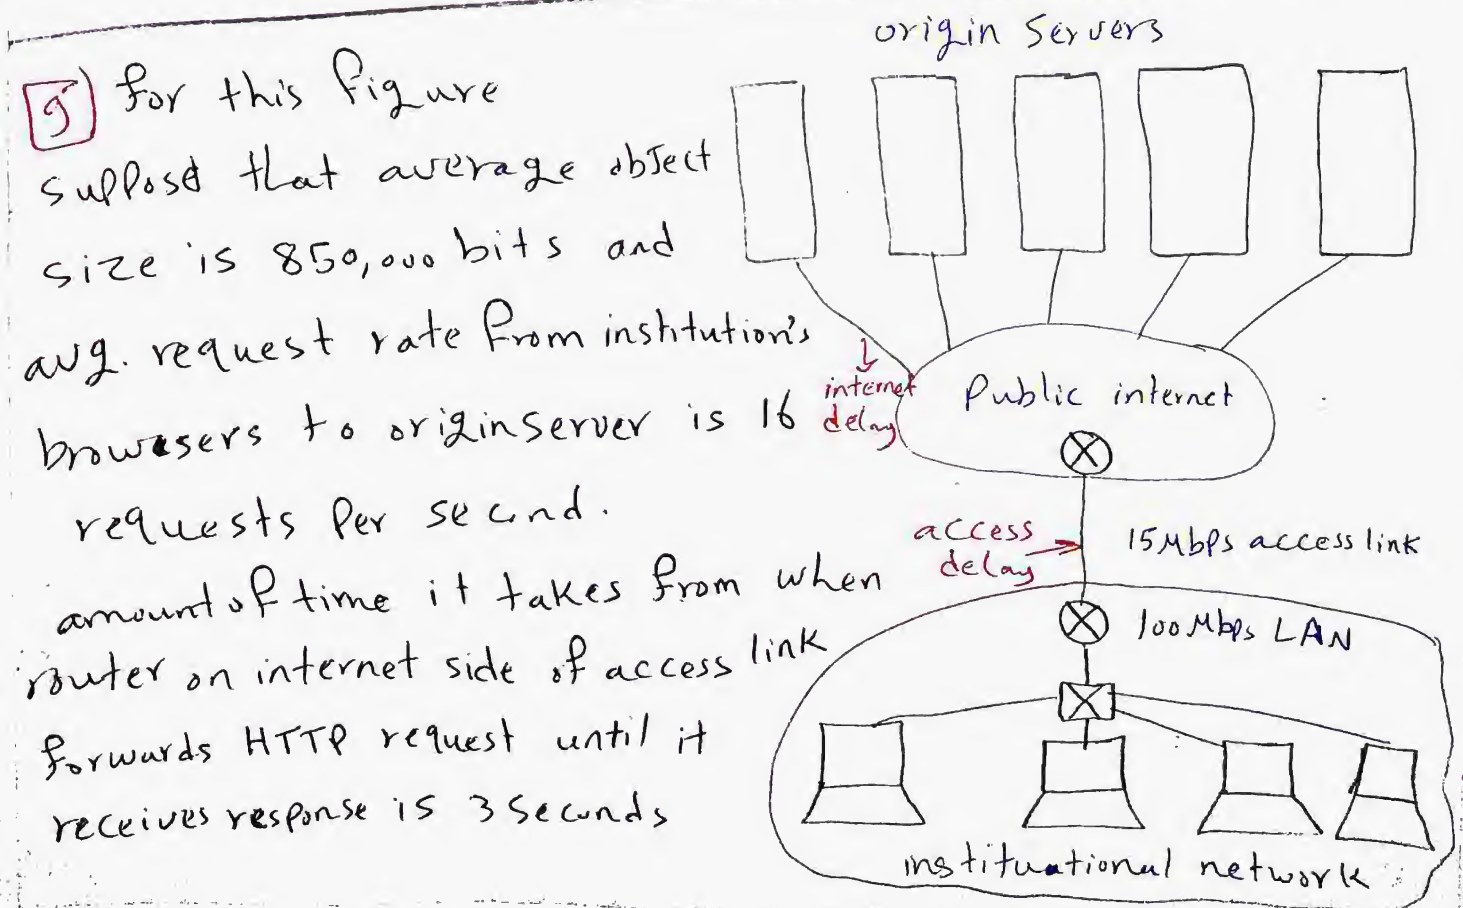 9) for this figure
supposd that average object
size is 850,000 bits and
avg. request rate from institution's
browesers to origin server is 16
requests Per second.
amount of time it takes from when
router on internet side of access link
forwards HTTP request until it
receives response is 3 seconds
origin servers
internet
delay
Public internet
access
delay
15 Mbps access link
100 Mbps LAN
instituational network